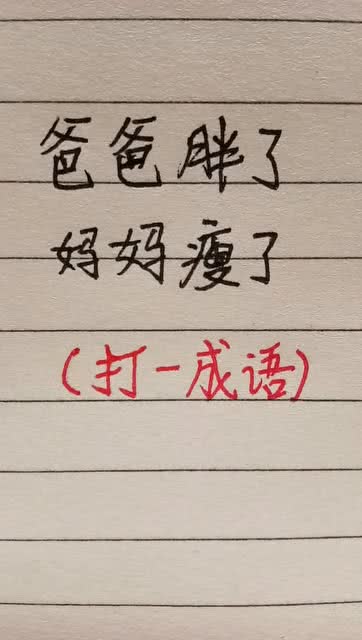 爸爸胖了
妈妈瘦了
(打一成语)